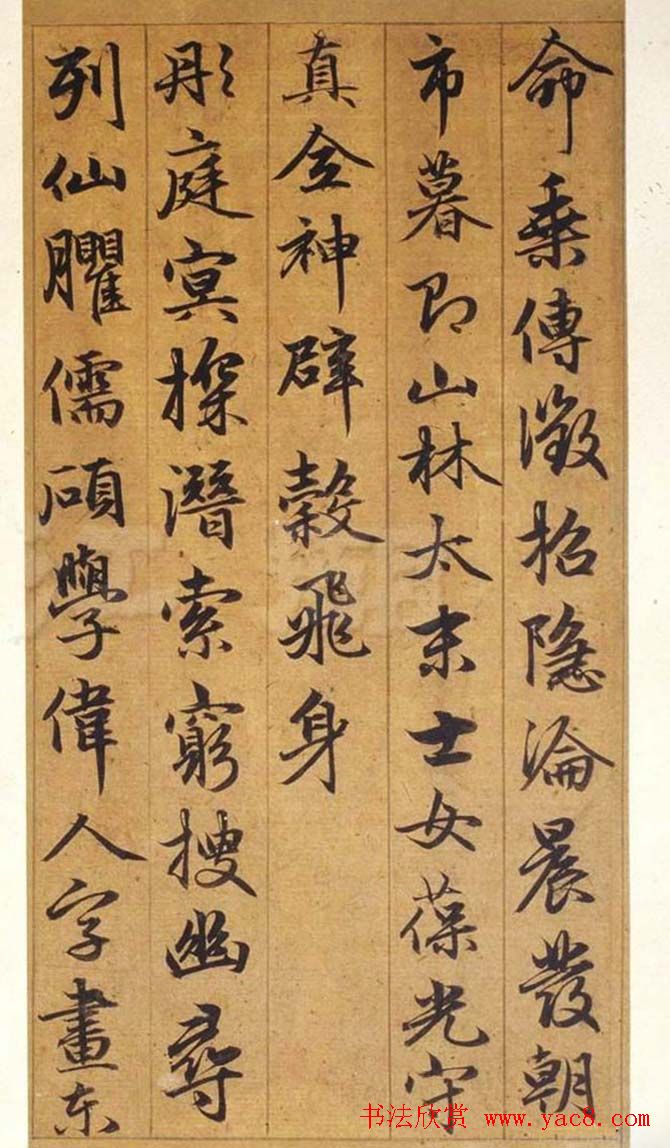 命乗傳徵招隱淪晨發朝
市暮即山林太末士女葆光守
真全神辟穀飛身
彤庭冥探潛索窮搜幽尋
列仙臞儒碩學偉人字畫东
书法欣赏 www.yac8.com